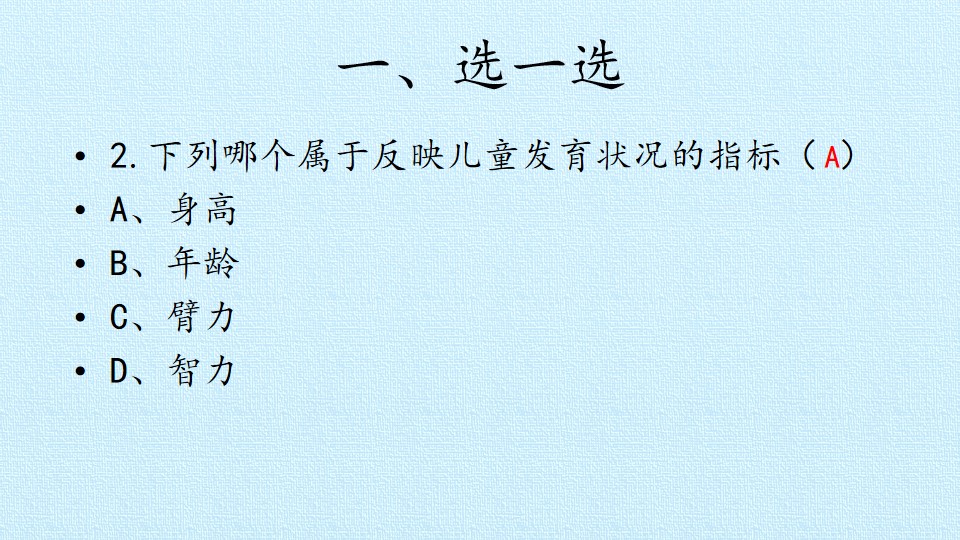 一、选一选
• 2.下列哪个属于反映儿童发育状况的指标（A）
• A、身高
• B、年龄
• C、臂力
• D、智力